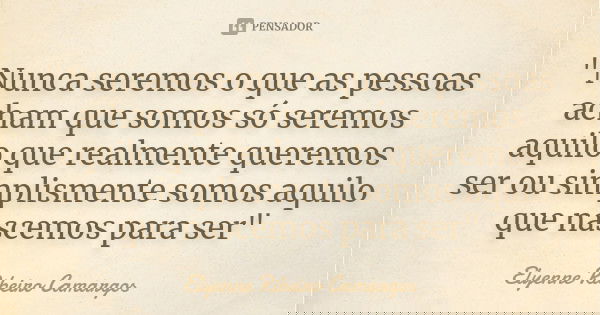 PENSADOR
"Nunca seremos o que as pessoas
acham que somos só seremos
aquilo que realmente queremos
ser ou simplismente somos aquilo
que nascemos para ser"
Elyenne Ribeiro Camargos